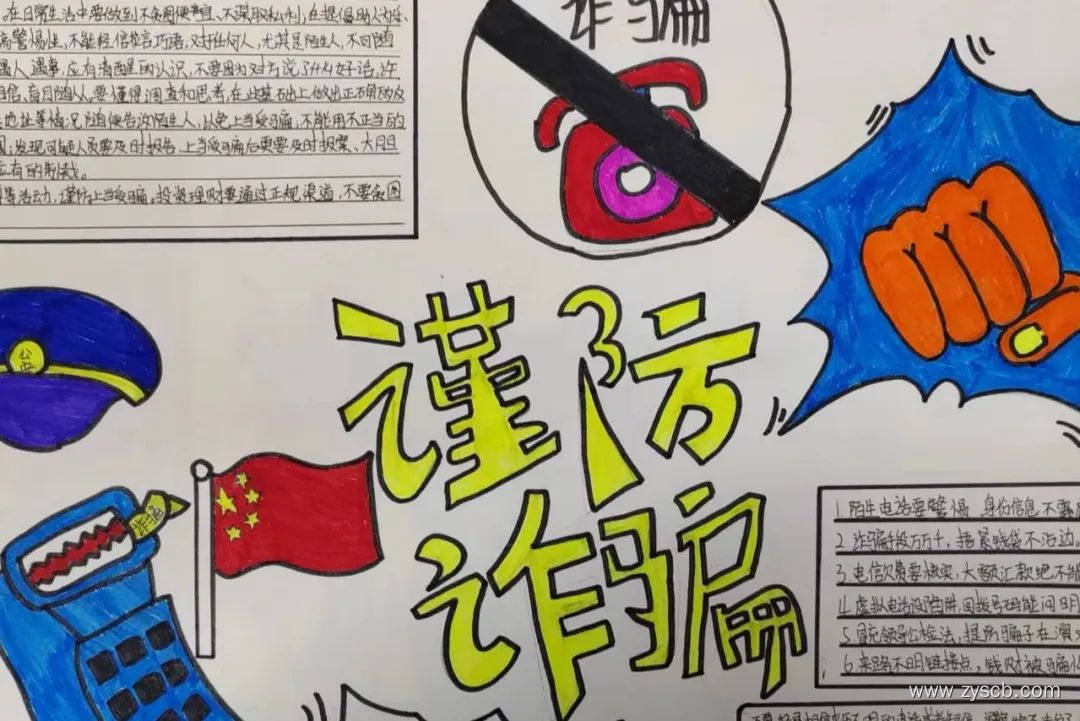 在日常生活中要做到不贪图便宜、不谋取私利;在提倡助人为乐、
高警惕性,不能轻信花言巧语,对任何人,尤其是陌生人,不可随
遇人、遇事,应有清醒的认识,不要因为对方说了什么好话,许
相信,盲目随人。要懂得调查和思考,在此基础上做出正确的反
地址等情况随便告诉陌生人,以免上当受骗;不能用不正当的
发现可疑人员要及时报告,上当受骗后更要及时报案、大胆
应有的制裁。
等活动,谨防上当受骗。投资理财要通过正规渠道,不要贪图
诈骗
公安
诈骗
谨防
诈骗
1.陌生电话要警惕 身份信息不露
2.诈骗手段万万千,捂紧钱袋不沾边、
3.电信欠费要核实,大额汇款绝不能
4.虚拟电话设陷阱,回拨号码能问明
5.冒充领导公检法,提防骗子在演
6.来路不明链接点,钱财被骗
www.zyscb.com